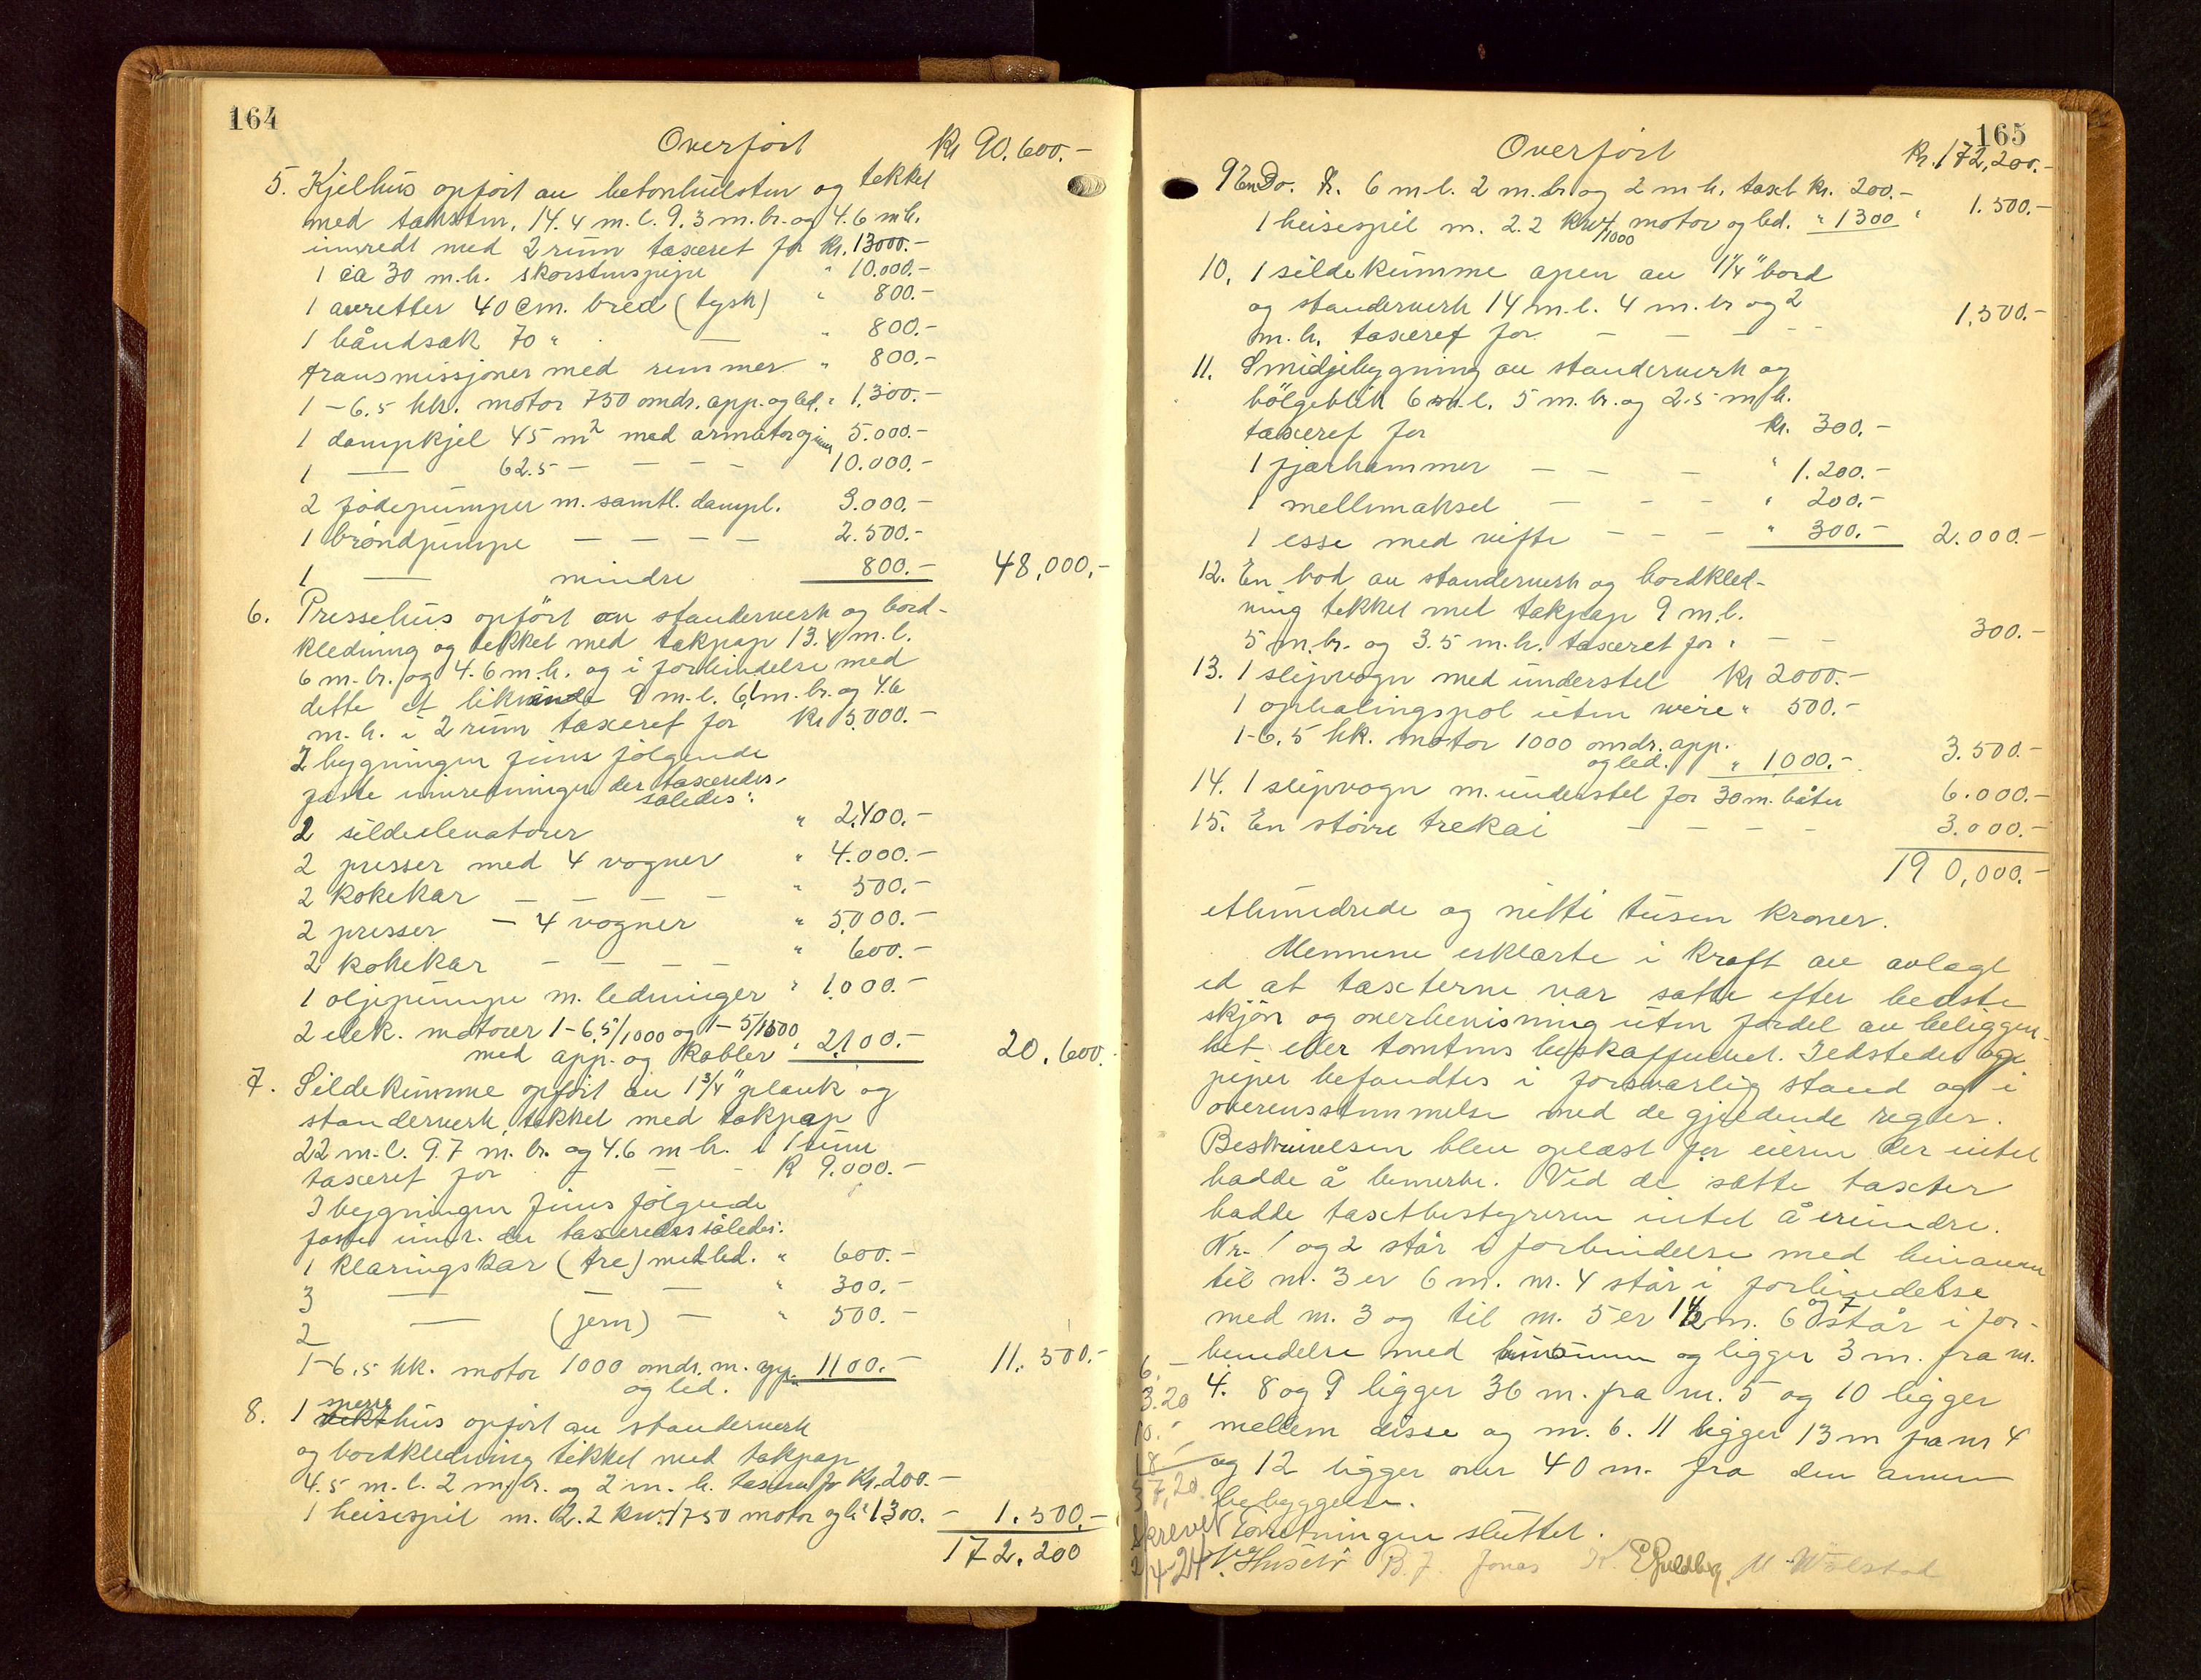 164
Overført Kr 90.600.-
5. Kjelhus opført av betonhulsten og tekket
med taksten, 14.4 m.l. 9.3 m.br. og 4.6 m h.
innredt med 2 rum taxeret for Kr. 13000.-
1 ca 30 m.h. skorstenspipe " 10.000.-
1 avretter 40 cm. bred (tysk) " 800.-
1 båndsak 70 " - " 800.-
transmissjoner med remmer " 800.-
1 - 6.5 hk. motor 750 omdr. app. og led. " 1,300.-
1 dampkjel 45 m² med armatur og 5.000.-
1 — 62.5 - - - - 10.000.-
2 fødepumper m. samtl. dampl. 3.000.-
1 brøndpumpe - - - - 2.500.-
1 — mindre 800.- 48,000,-
6. Pressehus opført av standerverk og bord-
kledning og tekket med takpap 13.4 m.l.
6 m.br. og 4.6 m.h. og i forbindelse med
dette et liknende 9 m.l. 6,1 m.br. og 4.6
m.h. i 2 rum taxeret for Kr 5.000.-
I bygningen fins følgende
faste innretninger der taxeredes
således:
2 sildeelevatorer " 2,400.-
2 presser med 4 vogner " 4.000.-
2 kokekar - - - " 500.-
2 presser - 4 vogner " 5,000.-
2 kokekar - - - - " 600.-
1 oljepumpe m. ledninger " 1,000.-
2 elek. motorer 1-6,5/1000 og 1-5/1500
med app. og kabler " 2,100.- 20.600.
7. Sildekumme opført av 1 3/4" plank og
standerverk, tekket med takpap
22 m.l. 9.7 m.br. og 4.6 m h. i 1 rum
taxeret for - - - K 9.000.-
I bygningen fins følgende
faste innr. der taxeredes således:
1 klaringskar (tre) med led. " 600.-
3 — — " 300.-
2 — (jern) - " 500.-
1-6.5 hk. motor 1000 omdr. m. app. 1100.- 11.500.-
og led.
8. 1 sperrehus opført av standerverk
og bordkledning tekket med takpap
4.5 m.l. 2 m.br. og 2 m.h. taxeret for Kr. 200.-
1 heisespil m. 2.2 kw./750 motor og l. 1300.- 1.500.-
172.200
165
Overført Kr. 172,200.-
9 En Do. 6 m.l. 2 m.br. og 2 m h. taxet kr. 200.-
1 heisespil m. 2.2 kw/1000 motor og led. " 1300 " 1.500.-
10. 1 sildekumme åpen av 1 1/4" bord
og standerverk 14 m.l. 4 m.br og 2
m.h. taxeret for - - - - 1,500.-
11. Smidjebygning av standerverk og
bölgeblik 6 m.l. 5 m.br. og 2.5 m h.
taxeret for kr. 300.-
1 fjærhammer - - - " 1.200.-
1 mellemaksel - - - " 200.-
1 esse med vifte - - - " 300.- 2.000.-
12. En bod av standerverk og bordkled-
ning tekket met takpap 9 m.l.
5 m.br. og 3.5 m.h. taxeret for - - 300.-
13. 1 slipvogn med understel Kr 2000.-
1 ophalingspol uten wire " 500.-
1-6,5 hk. motor 1000 omdr. app.
og led. " 1,000.- 3.500.-
14. 1 slipvogn m. understel for 30 m. båter 6.000.-
15. En større trekai - - - - 3.000.-
190,000.-
ethundrede og nitti tusen kroner.
Mennene erklærte i kraft av avlagt
ed at taxterne var satte efter bedste
skjøn og overbevisning uten fordel av beliggen-
het eller tomtens beskaffenhet. Ildsteder og
piper befandtes i forsvarlig stand og i
overensstemmelse med de gjeldende regler.
Beskrivelsen blev oplæst for eieren der intet
hadde å bemerke. Ved de satte taxter
hadde taxtbestyreren intet å erindre.
Nr. 1 og 2 står i forbindelse med hinannen
til nr. 3 er 6 m. nr. 4 står i forbindelse
med nr. 3 og til nr. 5 er 1 1/2 m. 6 og 7 står i for-
bindelse med hinannen og ligger 3 m. fra nr.
4. 8 og 9 ligger 36 m. fra nr. 5 og 10 ligger
mellem disse og nr. 6. 11 ligger 13 m fra nr 4
og 12 ligger over 40 m. fra den annen
bebyggelse.
Forretningen sluttet.
6.-
3.20
10.-
18
37,20
skrevet
2/4-24
B. J. Jonas K. E. Guldberg M. Wølstad